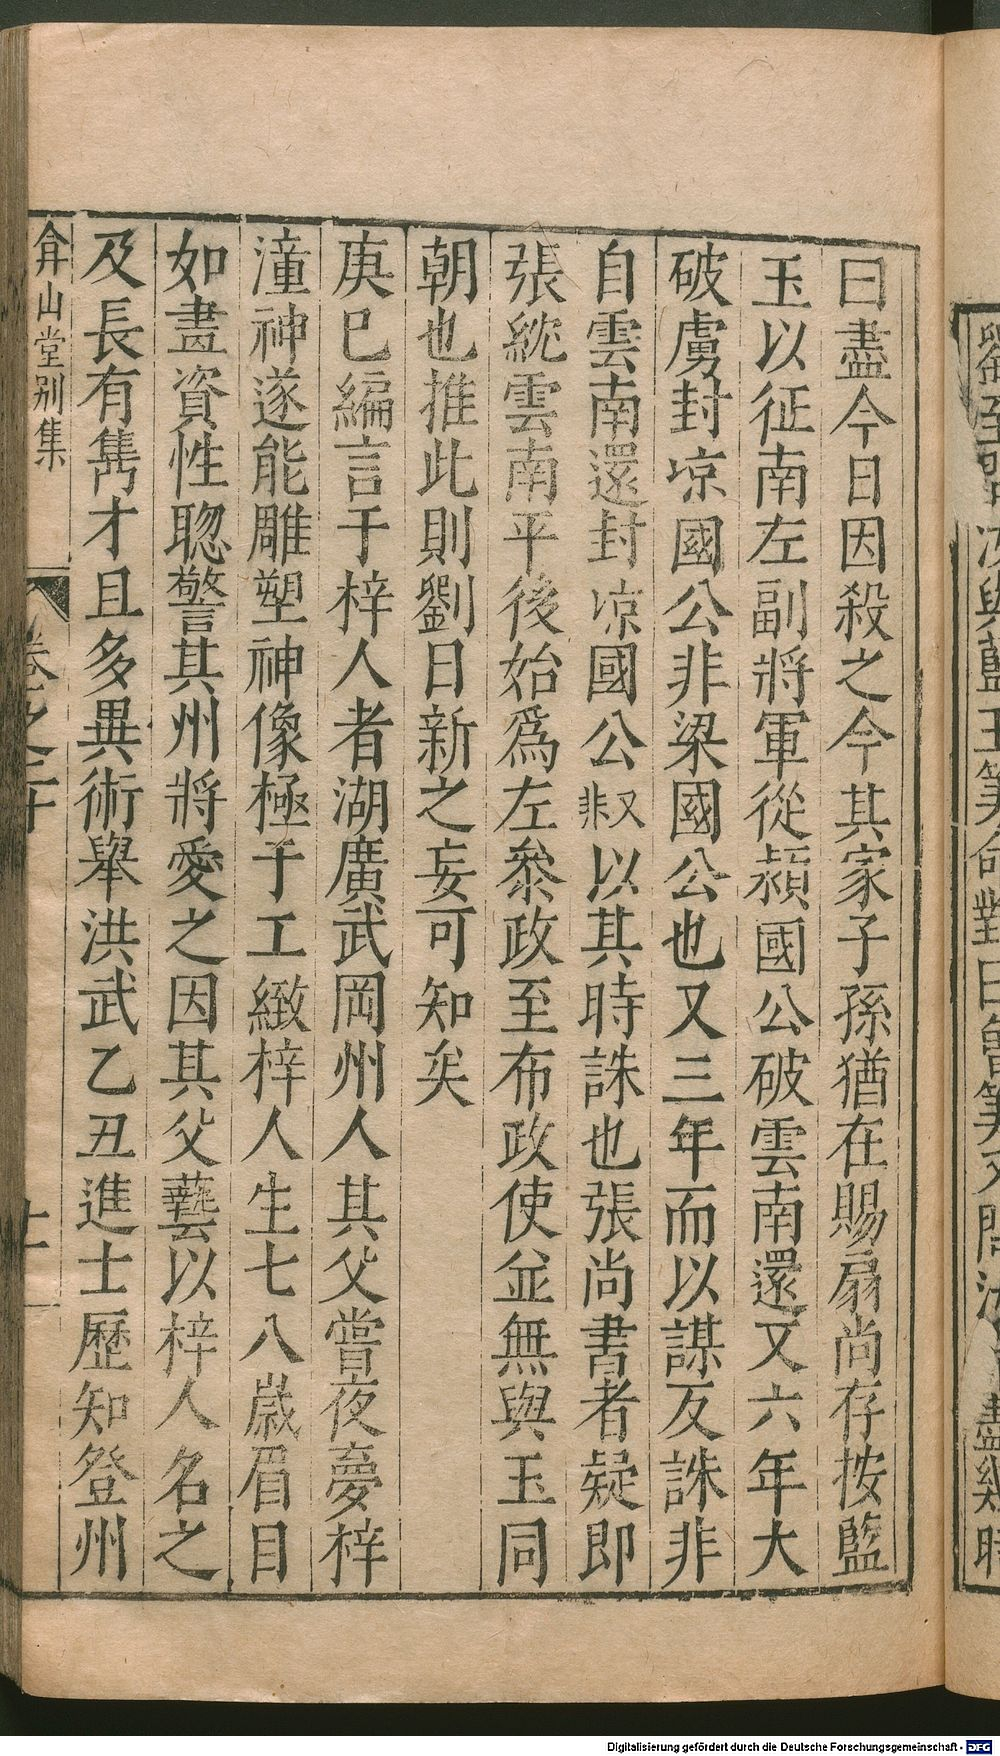 曰盡今日因殺之今其家子孫猶在賜扇尚存按藍
玉以征南左副將軍從潁國公破雲南還又六年大
破虜封凉國公非梁國公也又三年而以謀反誅非
自雲南還封凉國公叔非以其時誅也張尚書者疑即
張紞雲南平後始爲左叅政至布政使並無與玉同
朝也推此則劉日新之妄可知矣
庚巳編言于梓人者湖廣武岡州人其父嘗夜夢梓
潼神遂能雕塑神像極于工緻梓人生七八歲眉目
如畫資性聰警其州將愛之因其父藝以梓人名之
及長有雋才且多異術舉洪武乙丑進士歷知登州
弇山堂别集
卷之二十
十一
Digitalisierung gefördert durch die Deutsche Forschungsgemeinschaft - DFG